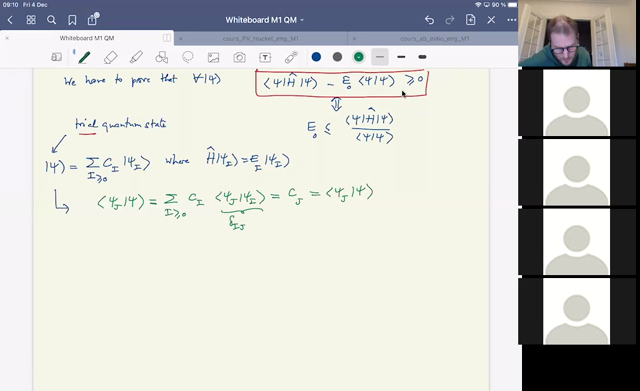 09:10 Fri 4 Dec
90 %
Whiteboard M1 QM
Whiteboard M1 QM
cours_PV_Huckel_emg_M1
cours_ab_initio_emg_M1
We have to prove that ∀|Ψ⟩ ⟨Ψ|Ĥ|Ψ⟩ - E₀ ⟨Ψ|Ψ⟩ ⩾ 0
⇕
E₀ ≤ ⟨Ψ|Ĥ|Ψ⟩ / ⟨Ψ|Ψ⟩
trial quantum state
|Ψ⟩ = Σ_{I⩾0} C_I |Ψ_I⟩ where Ĥ|Ψ_I⟩ = E_I |Ψ_I⟩
↳ ⟨Ψ_J|Ψ⟩ = Σ_{I⩾0} C_I ⟨Ψ_J|Ψ_I⟩ = C_J = ⟨Ψ_J|Ψ⟩
δ_{IJ}